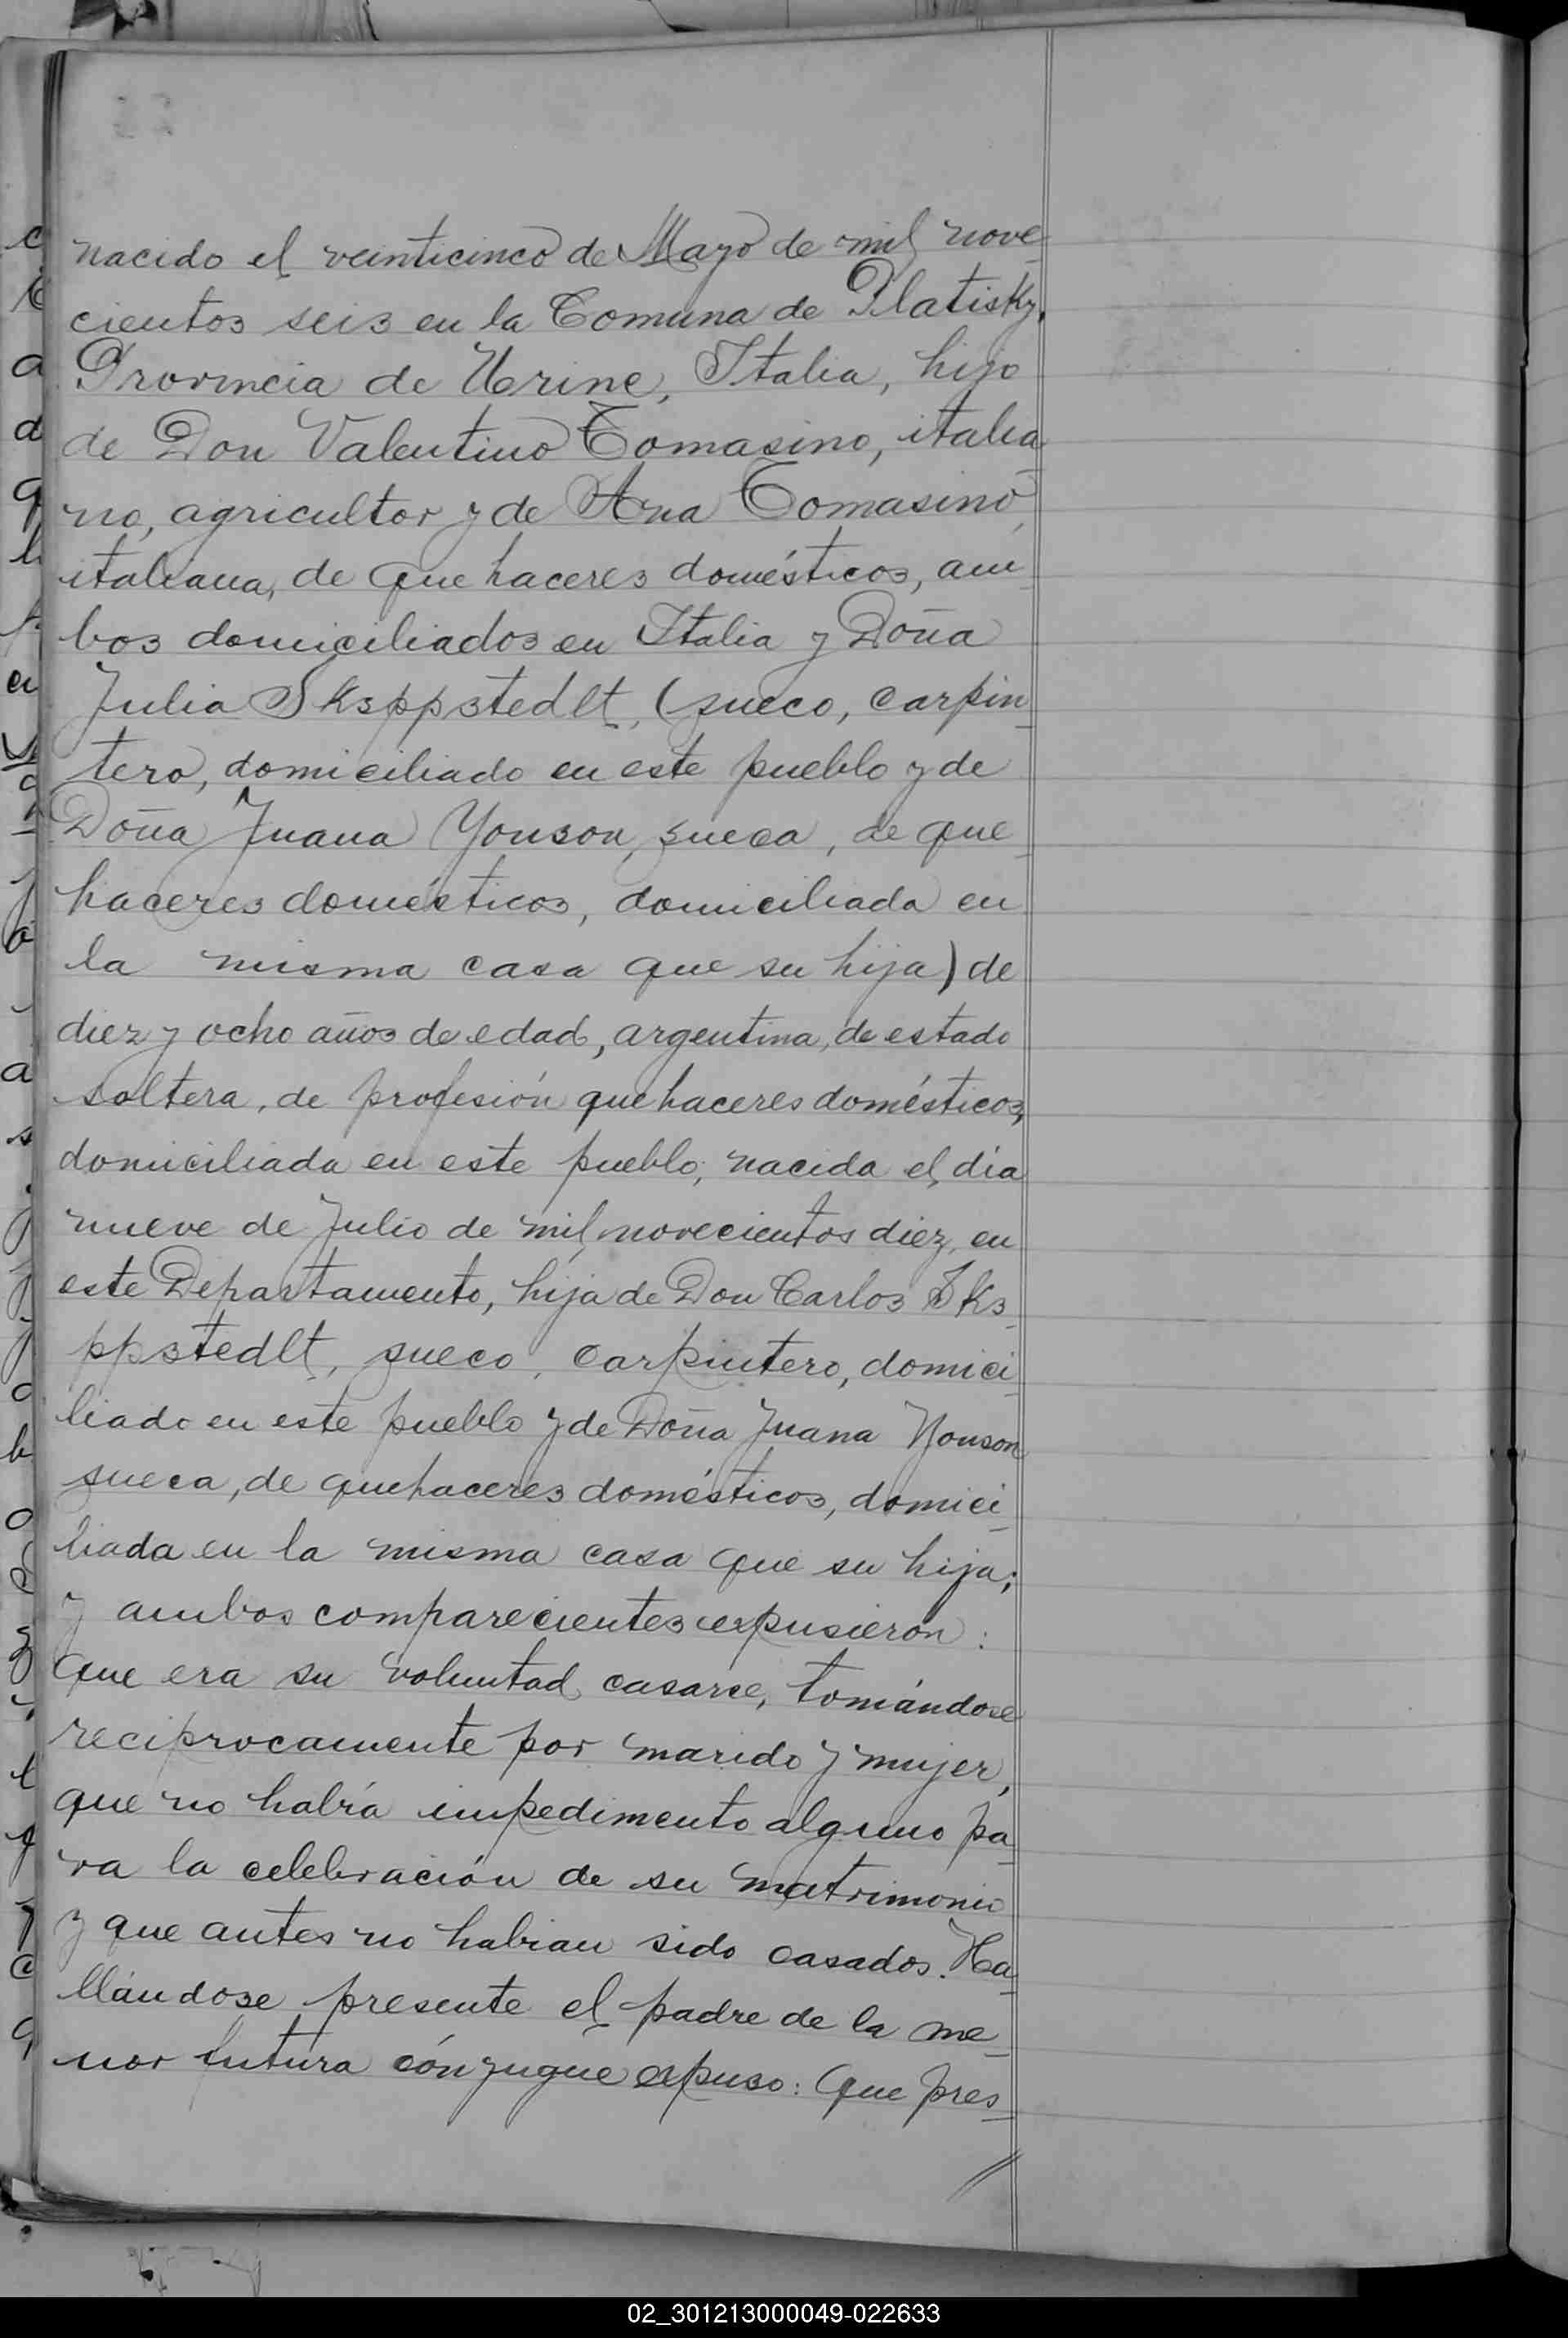 nacido el veinticinco de Mayo de mil nove-
cientos seis en la Comuna de Platisky,
Provincia de Urine, Italia, hijo
de Don Valentino Tomasino, italia-
no, agricultor y de Ana Tomasino,
italiana, de que haceres domésticos, am-
bos domiciliados en Italia y Doña
Julia Sksppstedlt, (sueco, carpin-
tero, domiciliado en este pueblo y de
Doña Juana Yonson, sueca, de que-
haceres domésticos, domiciliada en
la misma casa que su hija) de
diez y ocho años de edad, argentina, de estado
soltera, de profesión que haceres domésticos,
domiciliada en este pueblo, nacida el dia
nueve de Julio de mil novecientos diez, en
este Departamento, hija de Don Carlos Sks-
ppstedlt, sueco, carpintero, domici-
liado en este pueblo y de Doña Juana Yonson
sueca, de quehaceres domésticos, domici-
liada en la misma casa que su hija;
y ambos comparecientes expusieron:
Que era su voluntad casarse, tomándose
reciprocamente por marido y mujer,
que no habría impedimento alguno pa-
ra la celebración de su matrimonio
y que antes no habian sido casados. Ha-
llándose presente el padre de la me-
nor futura cónyugue expuso: Que pres-
02_301213000049-022633